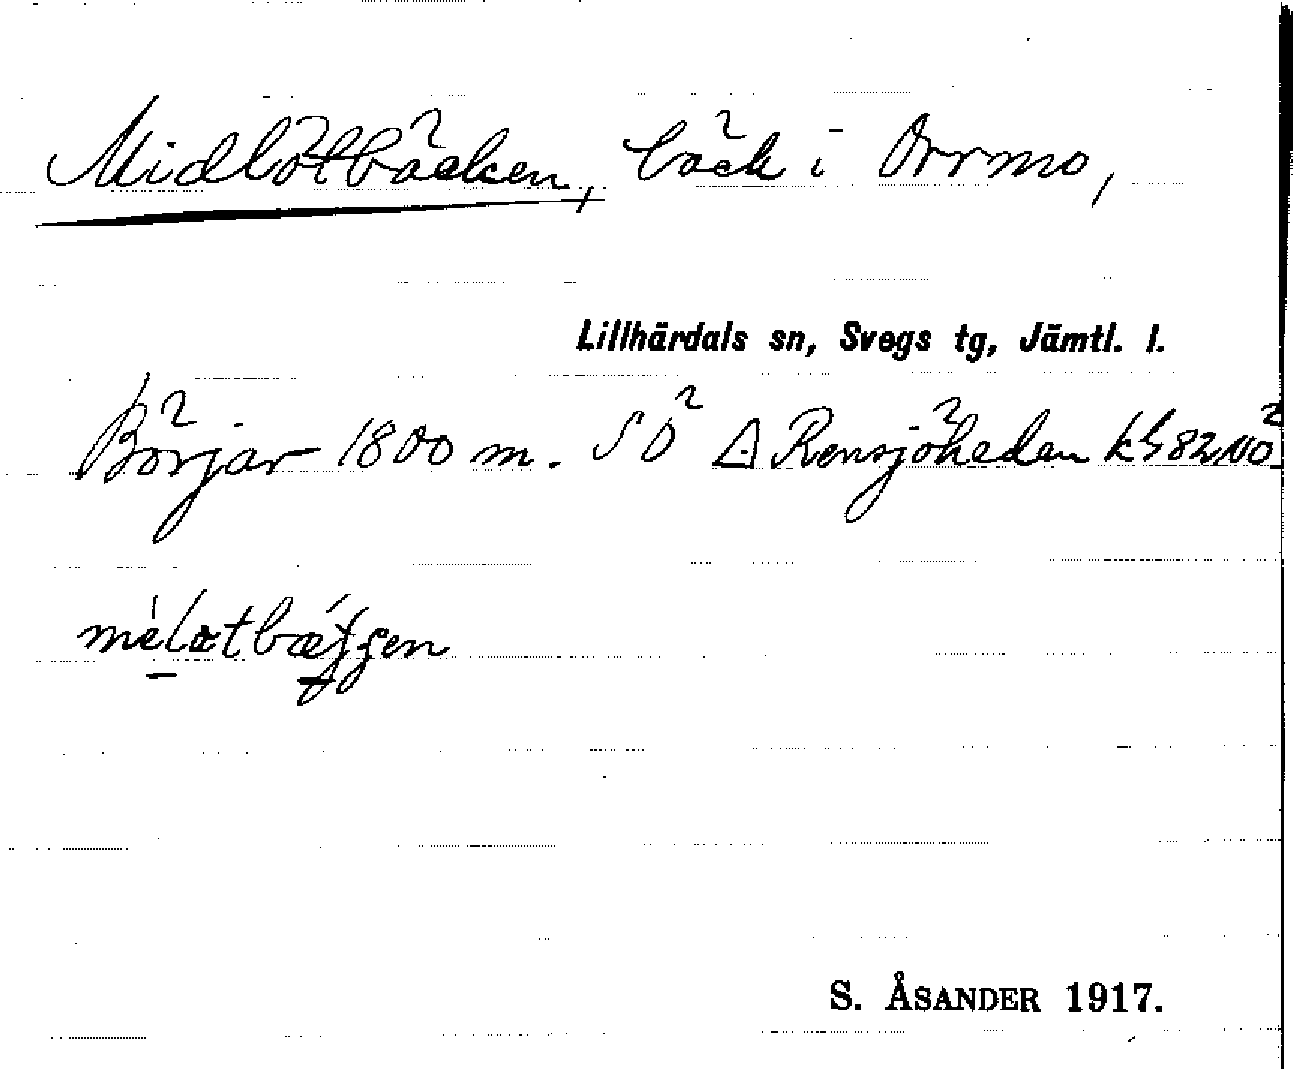 Midlötbäcken, bäck i Orrmo,
Lillhärdals sn, Svegs tg, Jämtl. l.
Börjar 1800 m. SÖ △ Rensjöheden kbl 82 NÖ
mèlœtbǽʝʝen
S. ÅSANDER 1917.